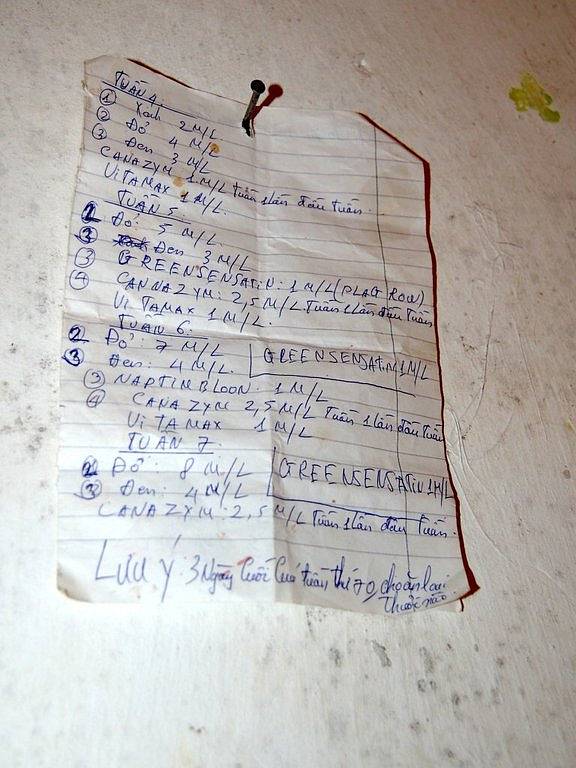 TUẦN 4.
① Xanh 2 M/L
② Đỏ 4 M/L
③ Đen 3 M/L
CANAZYM 1 M/L Tuần 1 lần đầu tuần.
ViTAMAX 1 M/L.
TUẦN 5.
2 Đỏ: 5 M/L
3 Đen 3 M/L
③ GREENSENSATiN: 1 M/L (PLAGROW)
④ CANNAZYM: 2,5 M/L. Tuần 1 lần đầu tuần
Vi TAMAX 1 M/L.
TUẦN 6.
2 Đỏ: 7 M/L GREENSENSATiN 1M/L
3 Đen: 4 M/L.
③ NAPTINBLOON. 1 M/L
④ CANAZYM 2,5 M/L Tuần 1 lần đầu tuần
ViTAMAX 1 M/L
TUẦN 7.
2 Đỏ: 8 M/L GREENSENSATiN 1M/L
3 Đen: 4 M/L
CANAZYM: 2,5 M/L Tuần 1 lần đầu tuần.
Lưu ý: 3 Ngày cuối của tuần thứ 7 cho ăn loại
thuốc nào.